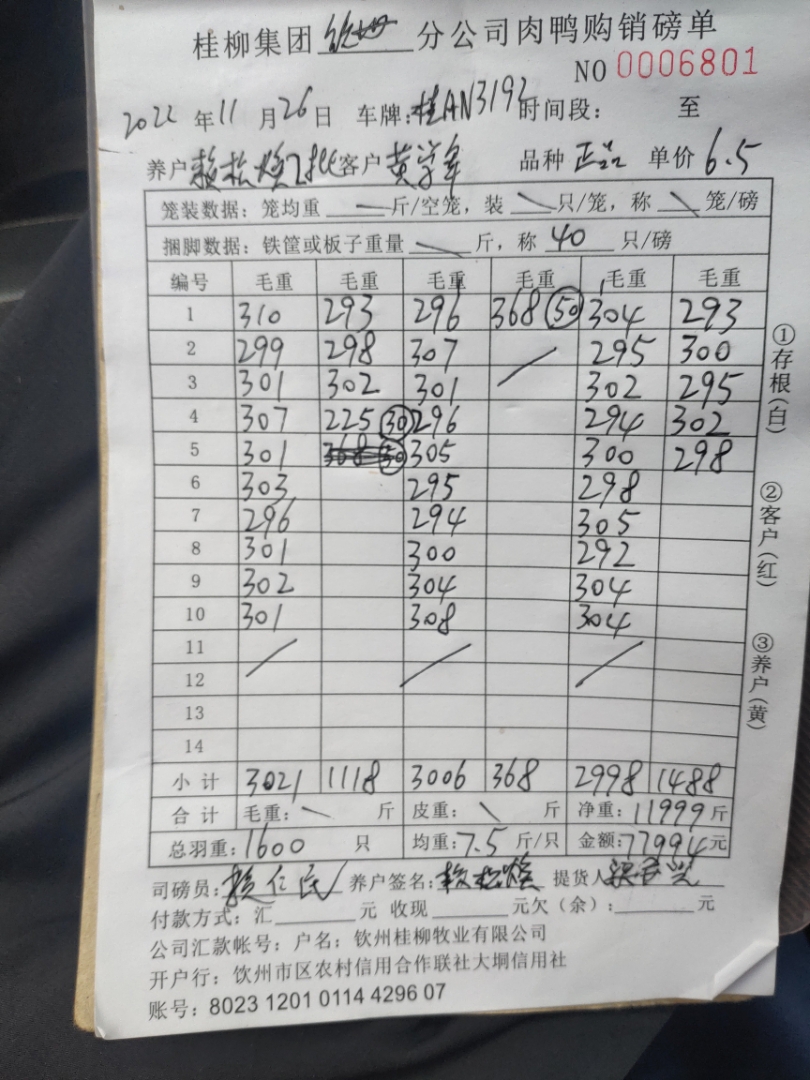 桂柳集团 钦州 分公司肉鸭购销磅单
NO 0006801
2022 年 11 月 26 日 车牌: 桂AN3192 时间段: 至
养户 赖松焕2批 客户 黄学军 品种 正品 单价 6.5
笼装数据: 笼均重 — 斤/空笼, 装 \ 只/笼, 称 \ 笼/磅
捆脚数据: 铁筐或板子重量 \ 斤, 称 40 只/磅
编号 毛重 毛重 毛重 毛重 毛重 毛重
1 310 293 296 368 50 304 293
2 299 298 307 / 295 300
3 301 302 301 302 295
4 307 225 30 296 294 302
5 301 368 30 305 300 298
6 303 295 298
7 296 294 305
8 301 300 292
9 302 304 304
10 301 308 304
11 / / /
12
13
14
小计 3021 1118 3006 368 2998 1488
合计 毛重: \ 斤 皮重: \ 斤 净重: 11999 斤
总羽重: 1600 只 均重: 7.5 斤/只 金额: 77994 元
司磅员: 赖仁民 养户签名: 赖松焕 提货人
付款方式: 汇 元 收现 元欠(余): 元
公司汇款帐号: 户名: 钦州桂柳牧业有限公司
开户行: 饮州市区农村信用合作联社大垌信用社
账号: 8023 1201 0114 4296 07
①存根(白)
②客户(红)
③养户(黄)